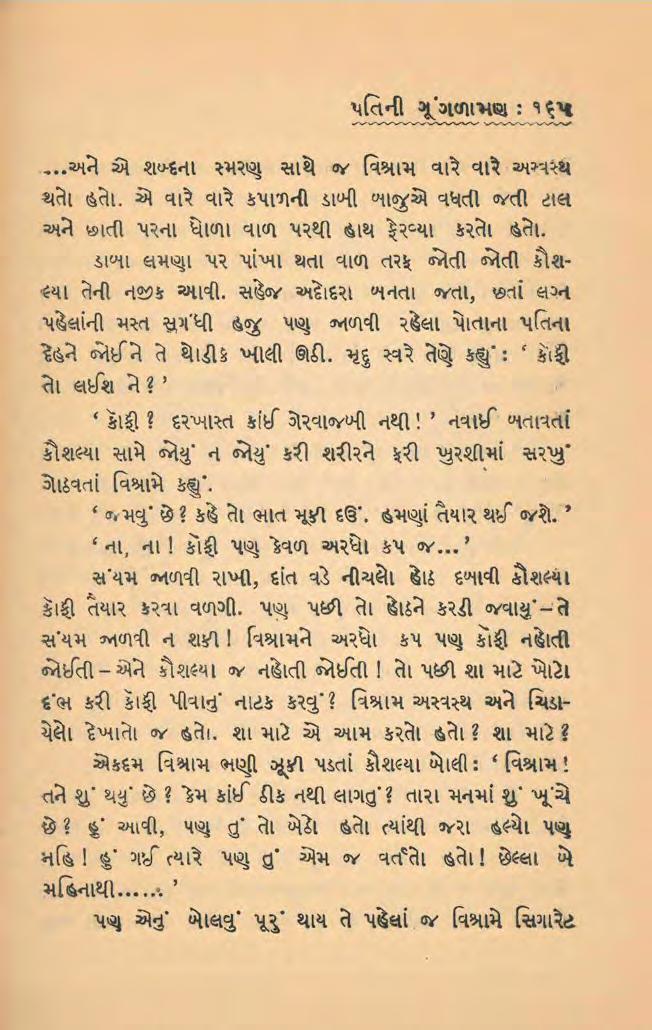 પતિની ગૂંગળામણ : ૧૬૫
...અને એ શબ્દના સ્મરણ સાથે જ વિશ્રામ વારે વારે અસ્વસ્થ
થતો હતો. એ વારે વારે કપાળની ડાબી બાજુએ વધતી જતી ટાલ
અને છાતી પરના ધોળા વાળ પરથી હાથ ફેરવ્યા કરતો હતો.
ડાબા લમણા પર પાંખા થતા વાળ તરફ જોતી જોતી કૌશ-
લ્યા તેની નજીક આવી. સહેજ અદોદરા બનતા જતા, છતાં લગ્ન
પહેલાંની મસ્ત સુગંધી હજુ પણ જાળવી રહેલા પોતાના પતિના
દેહને જોઈને તે થોડીક ખાલી ઊઠી. મૃદુ સ્વરે તેણે કહ્યું : ‘ કૉફી
તો લઈશ ને ? ’
‘ કૉફી ? દરખાસ્ત કાંઈ ગેરવાજબી નથી ! ’ નવાઈ બતાવતાં
કૌશલ્યા સામે જોયું ન જોયું કરી શરીરને ફરી ખુરશીમાં સરખું
ગોઠવતાં વિશ્રામે કહ્યું.
‘ જમવું છે ? કહે તો ભાત મૂકી દઉં. હમણાં તૈયાર થઈ જશે. ’
‘ ના, ના ! કૉફી પણ કેવળ અરધો કપ જ... ’
સંયમ જાળવી રાખી, દાંત વડે નીચલો હોઠ દબાવી કૌશલ્યા
કૉફી તૈયાર કરવા વળગી. પણ પછી તો હોઠને કરડી જવાયું – તે
સંયમ જાળવી ન શકી ! વિશ્રામને અરધો કપ પણ કૉફી નહોતી
જોઈતી – એને કૌશલ્યા જ નહોતી જોઈતી ! તો પછી શા માટે ખોટો
દંભ કરી કૉફી પીવાનું નાટક કરવું ? વિશ્રામ અસ્વસ્થ અને ચિડા-
યેલો દેખાતો જ હતો. શા માટે એ આમ કરતો હતો ? શા માટે ?
એકદમ વિશ્રામ ભણી ઝૂકી પડતાં કૌશલ્યા બોલી : ‘ વિશ્રામ !
તને શું થયું છે ? કેમ કાંઈ ઠીક નથી લાગતું ? તારા મનમાં શું ખૂંચે
છે ? હું આવી, પણ તું તો બેઠો હતો ત્યાંથી જરા હલ્યો પણ
મહિ ! હું ગઈ ત્યારે પણ તું એમ જ વર્તતો હતો ! છેલ્લા બે
મહિનાથી...... ’
પણ એનું બોલવું પૂરું થાય તે પહેલાં જ વિશ્રામે સિગારેટ